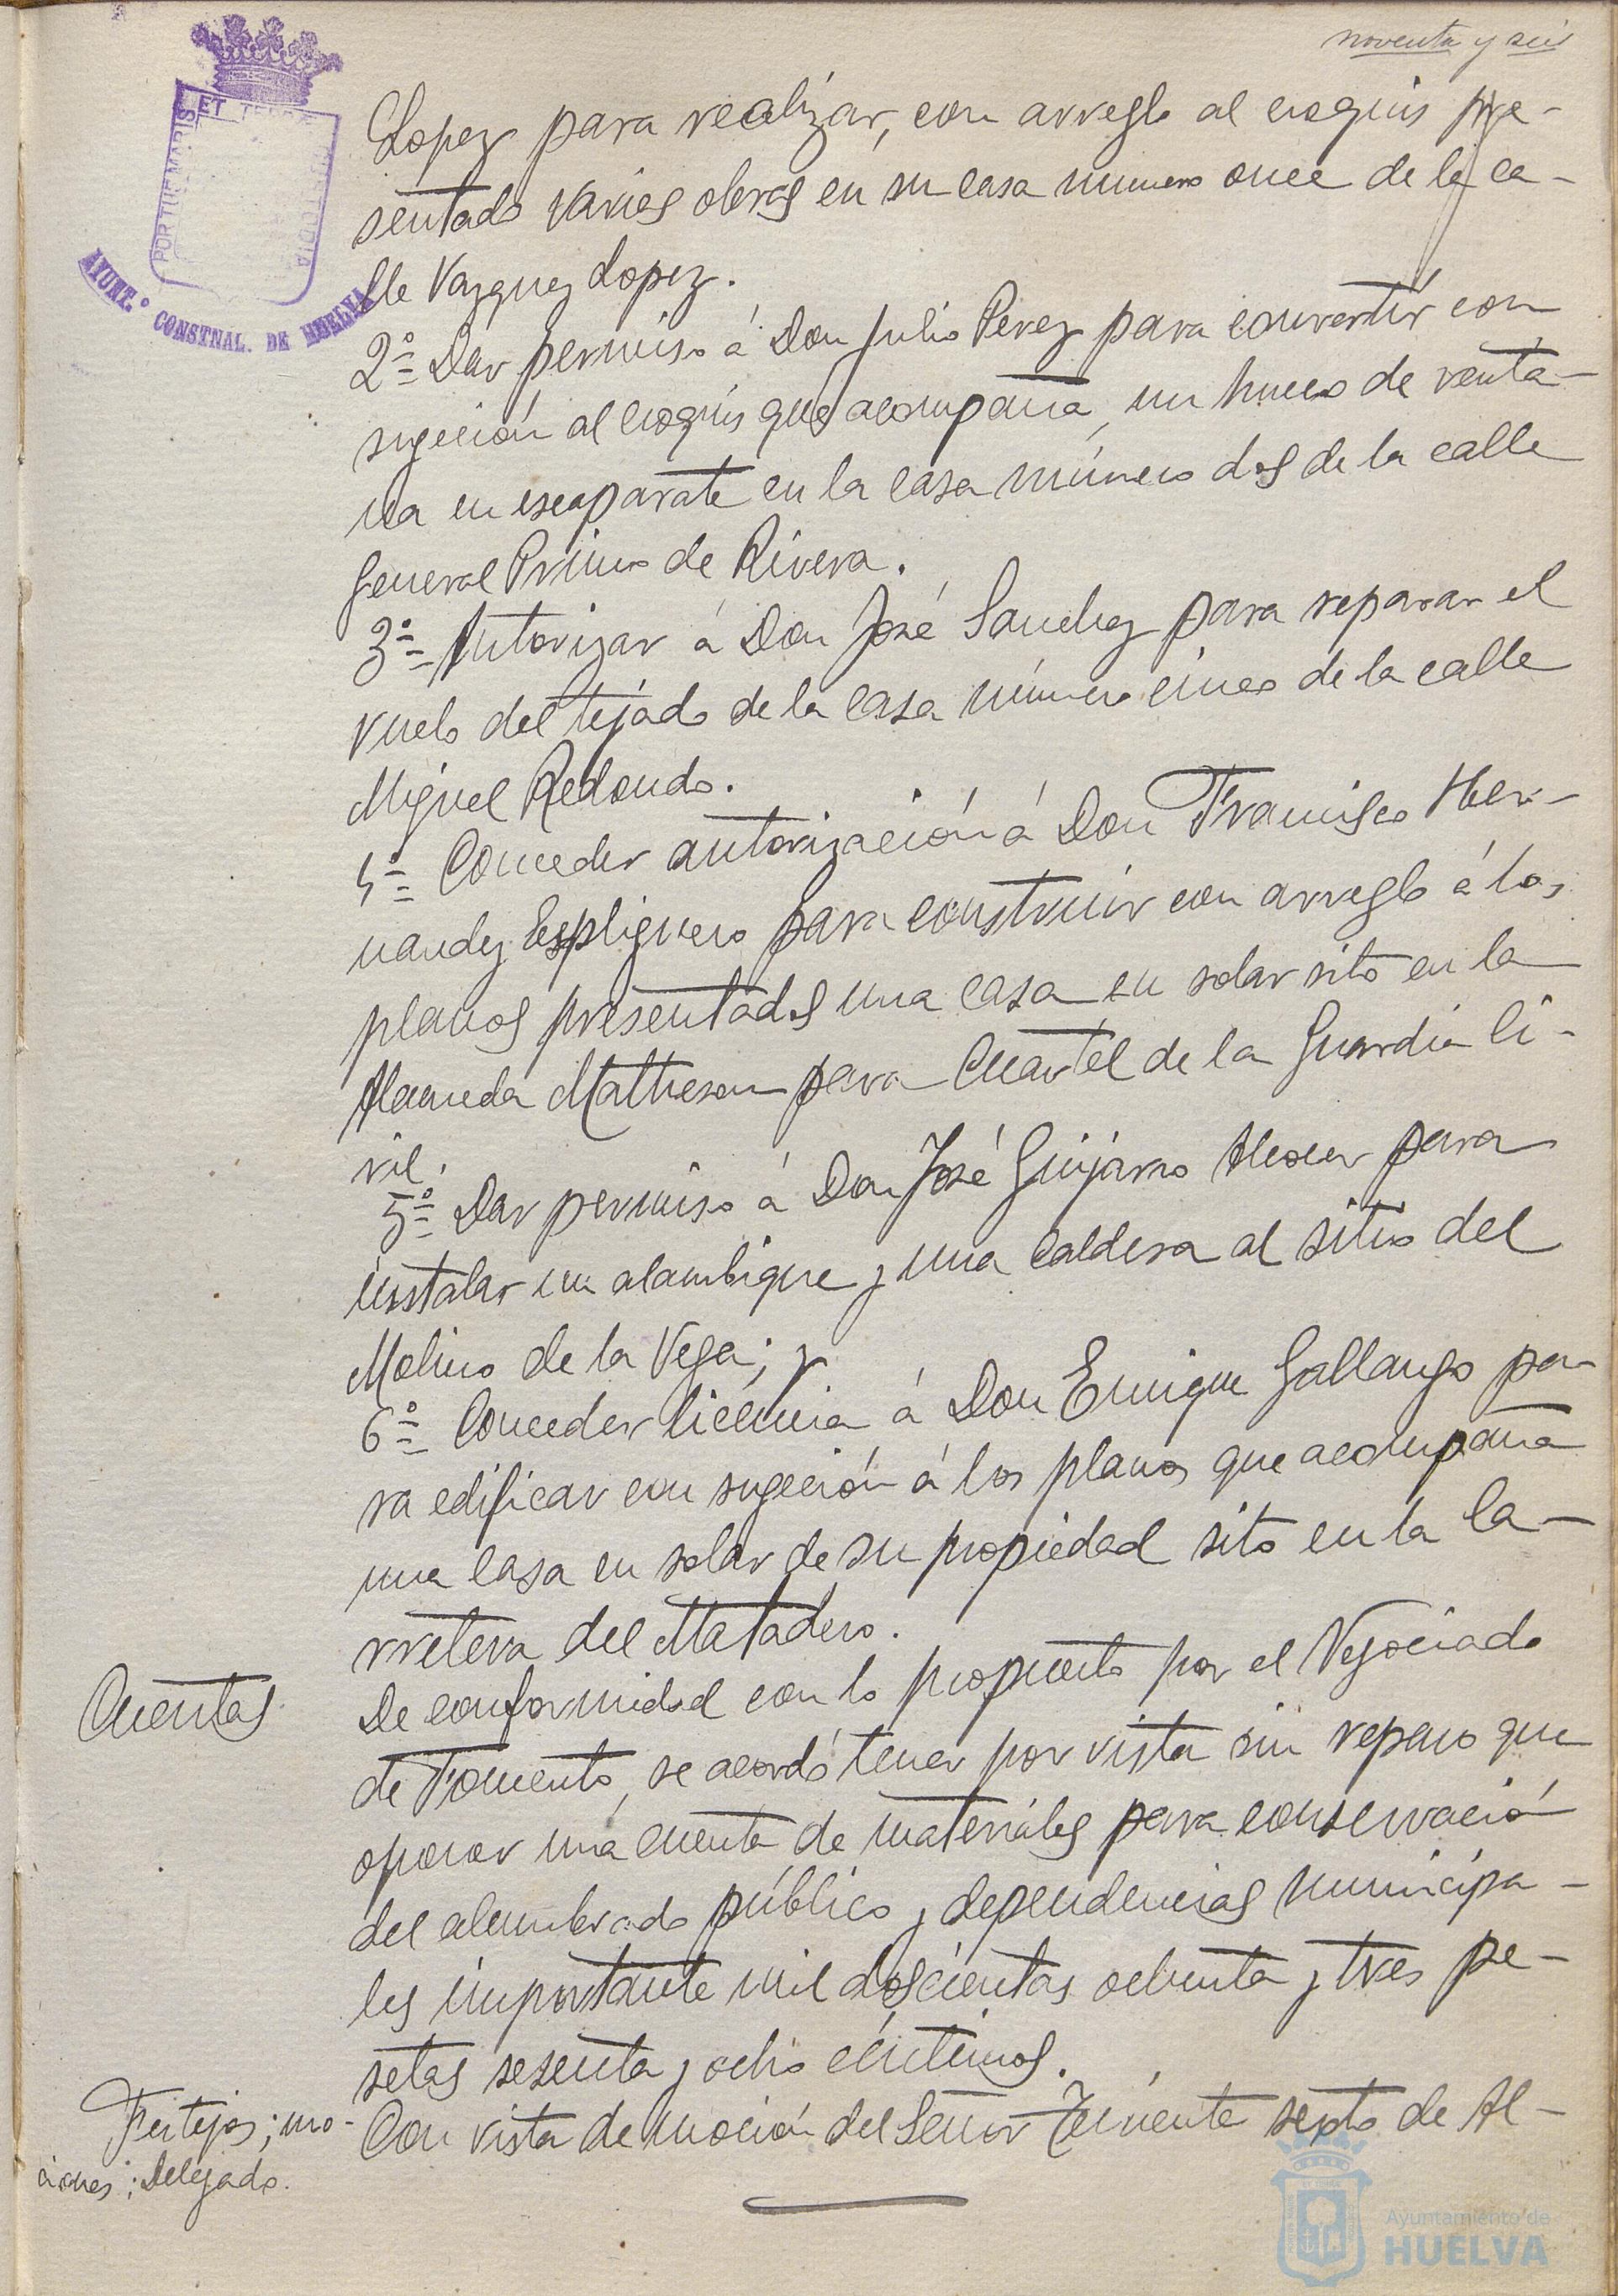 noventa y seis
Lopez para realizar, con arreglo al croquis pre-
sentado varias obras en su casa número once de la ca-
lle Vazquez Lopez.
2º= Dar permiso á Don Julio Perez para convertir con
sugeción al croquis que acompaña, un hueco de venta-
na en escaparate en la casa número dos de la calle
General Primo de Rivera.
3º= Autorizar á Don José Sanchez para reparar el
vuelo del tejado de la casa número cinco de la calle
Miguel Redondo.
4º= Conceder autorización á Don Francisco Her-
nandez Espliguero para construir con arreglo á los
planos presentados una casa en solar sito en la
Alameda Matheson para Cuartel de la Guardia Ci-
vil.
5º= Dar permiso á Don José Guijarro Alcocer para
instalar un alambique y una caldera al sitio del
Molino de la Vega; y
6º= Conceder licencia á Don Enrique Gallango pa-
ra edificar con sugeción á los planos que acompaña
una casa en solar de su propiedad sito en la ca-
rretera del Matadero.
Cuentas
De conformidad con lo propuesto por el Negociado
de Fomento, se acordó tener por vista sin reparo que
oponer una cuenta de materiales para conservación
del alumbrado público y dependencias municipa-
les importante mil doscientas ochenta y tres pe-
setas sesenta y ocho céntimos.
Festejos; mo-
ciones; Delegado.
Con vista de moción del Señor Teniente sexto de Al-
POR TUE MARIS ET TERRE CUSTODIA
AYUNT.º CONSTNAL. DE HUELVA
Ayuntamiento de
HUELVA